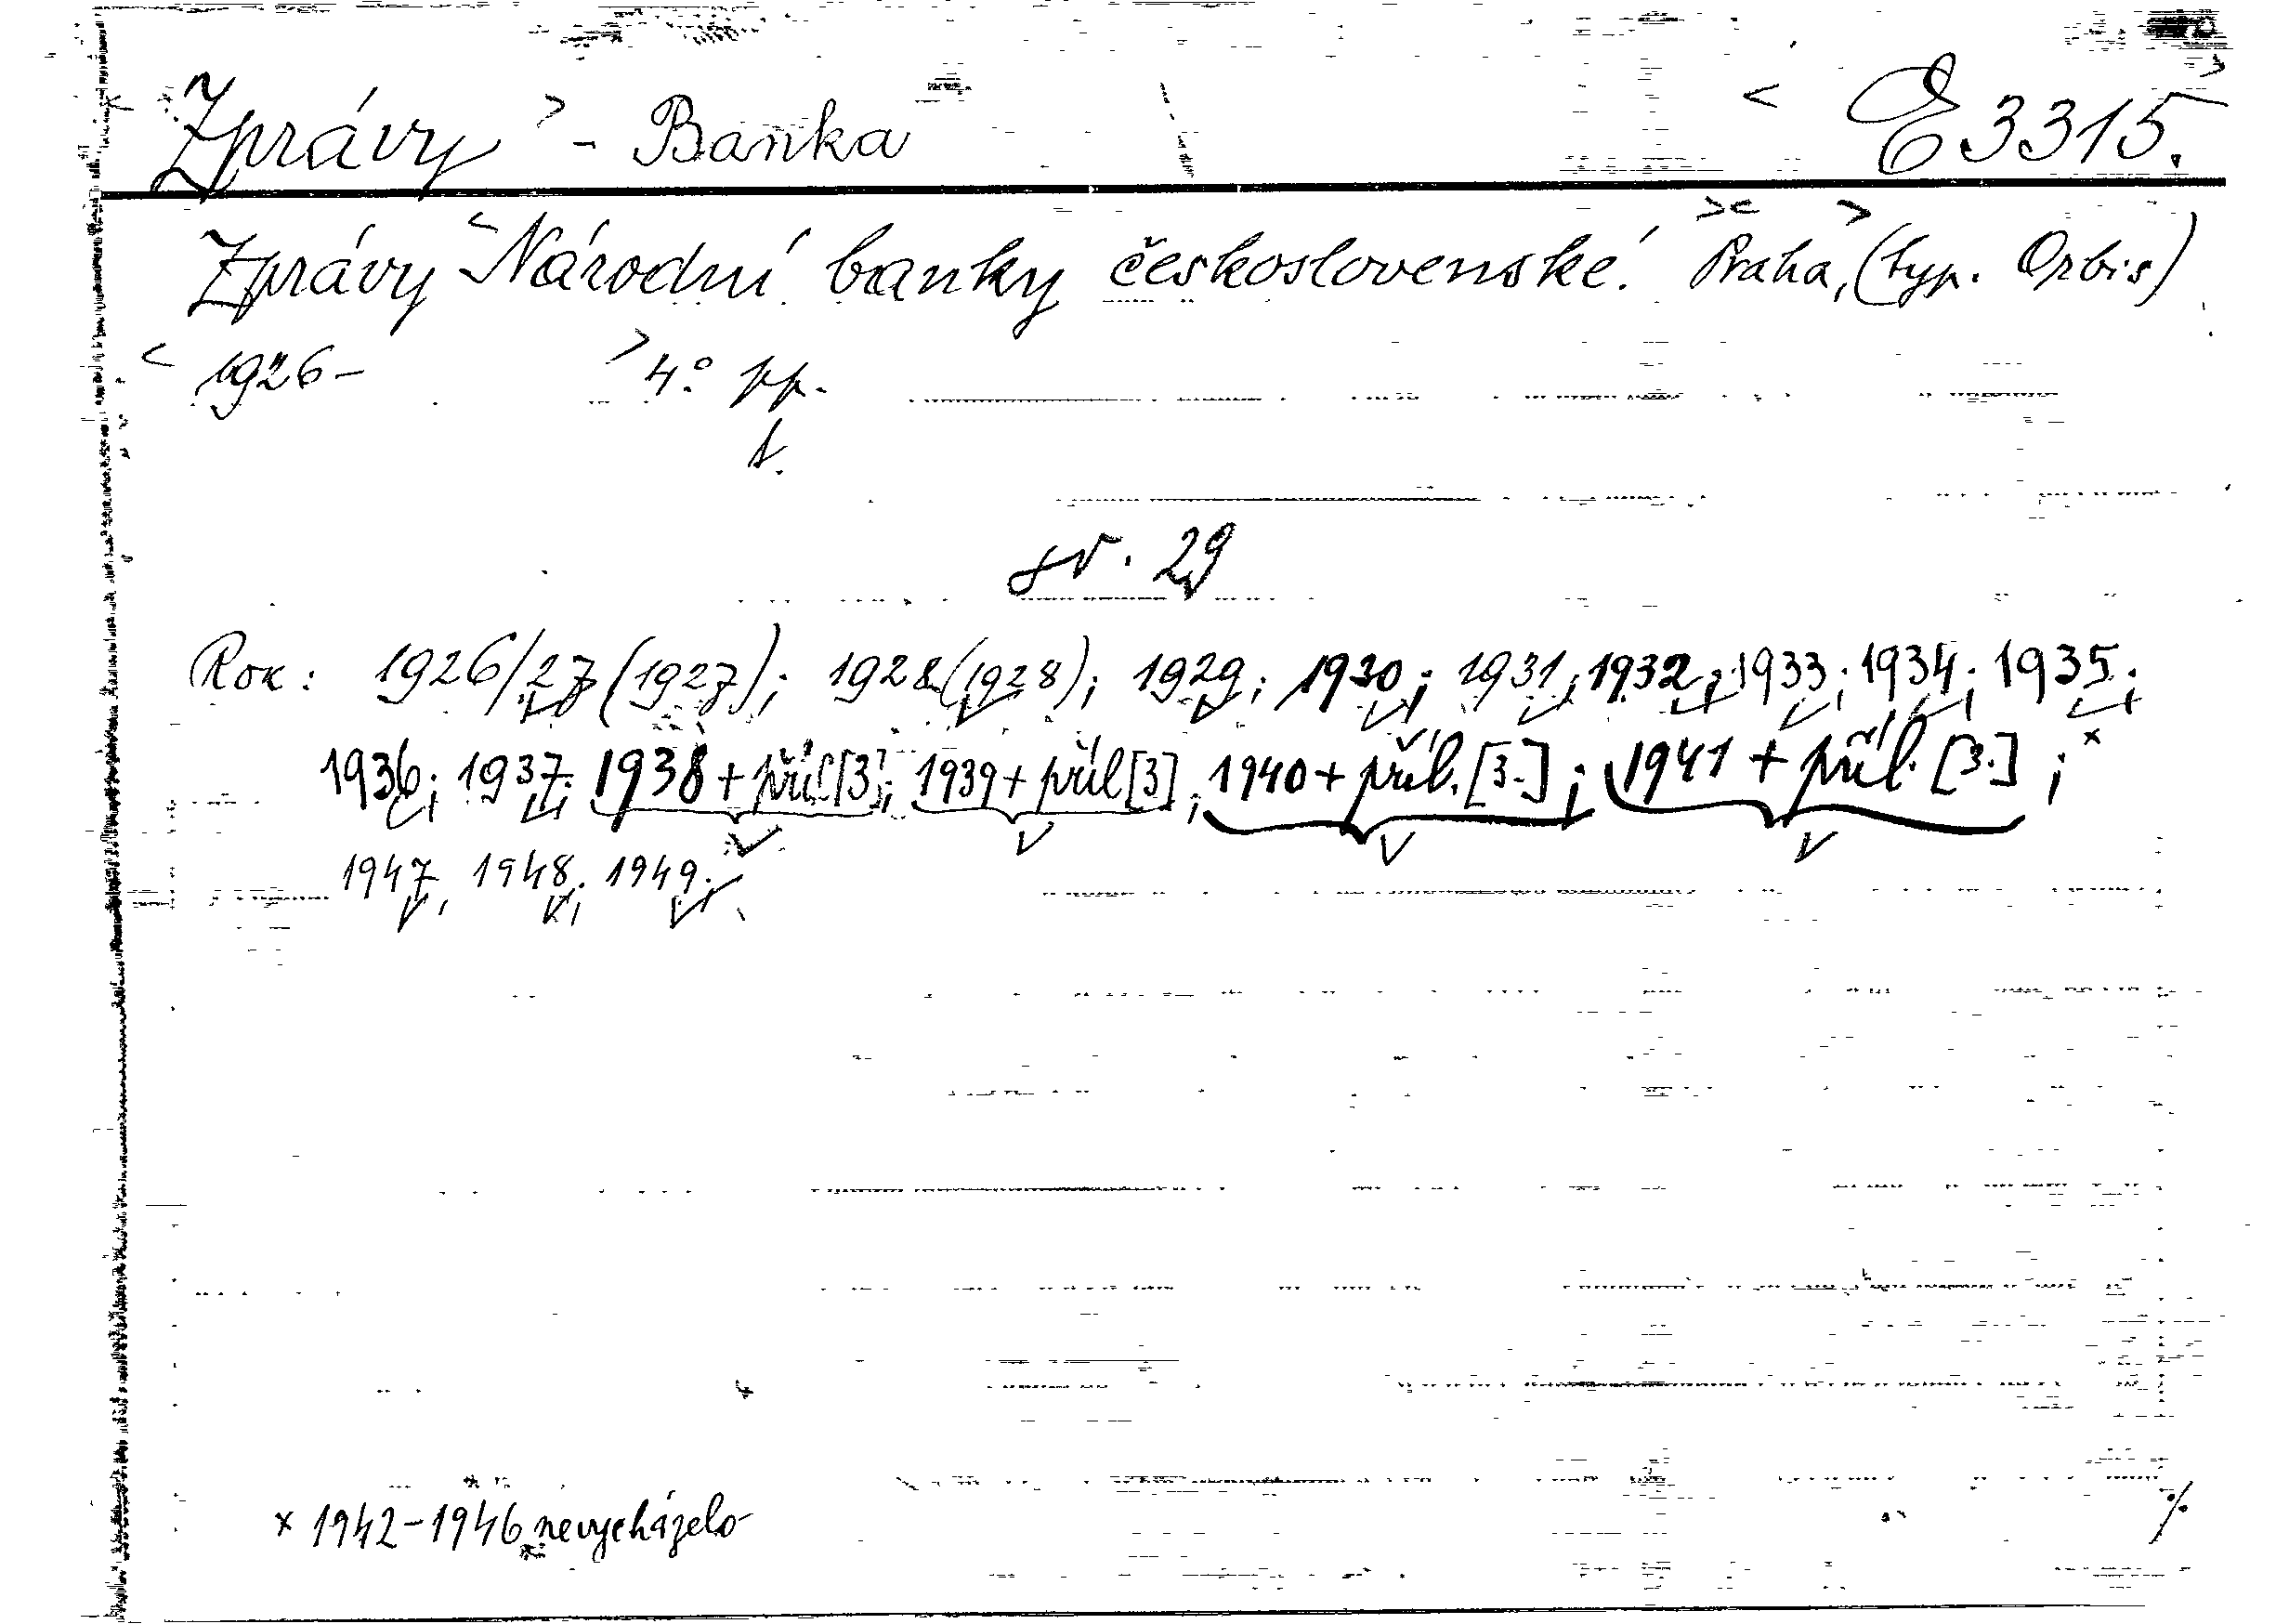 Zprávy - Banka E 3315.
Zprávy Národní banky československé. Praha, (typ. Orbis)
1926- 4° pp.
t.
sv. 29
Rok: 1926/27 (1927); 1928 (1928); 1929; 1930; 1931; 1932; 1933; 1934; 1935;
1936; 1937; 1938 + příl [3]; 1939 + příl [3]; 1940 + příl. [3.]; 1941 + příl. [3.]; ×
1947, 1948; 1949;
× 1942-1946 nevycházelo ./.